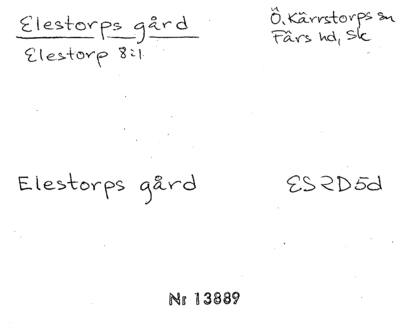 Elestorps gård
Elestorp 8:1
Ö. Kärrstorps sn
Färs hd, Sk
Elestorps gård
ES2D5d
Nr 13889